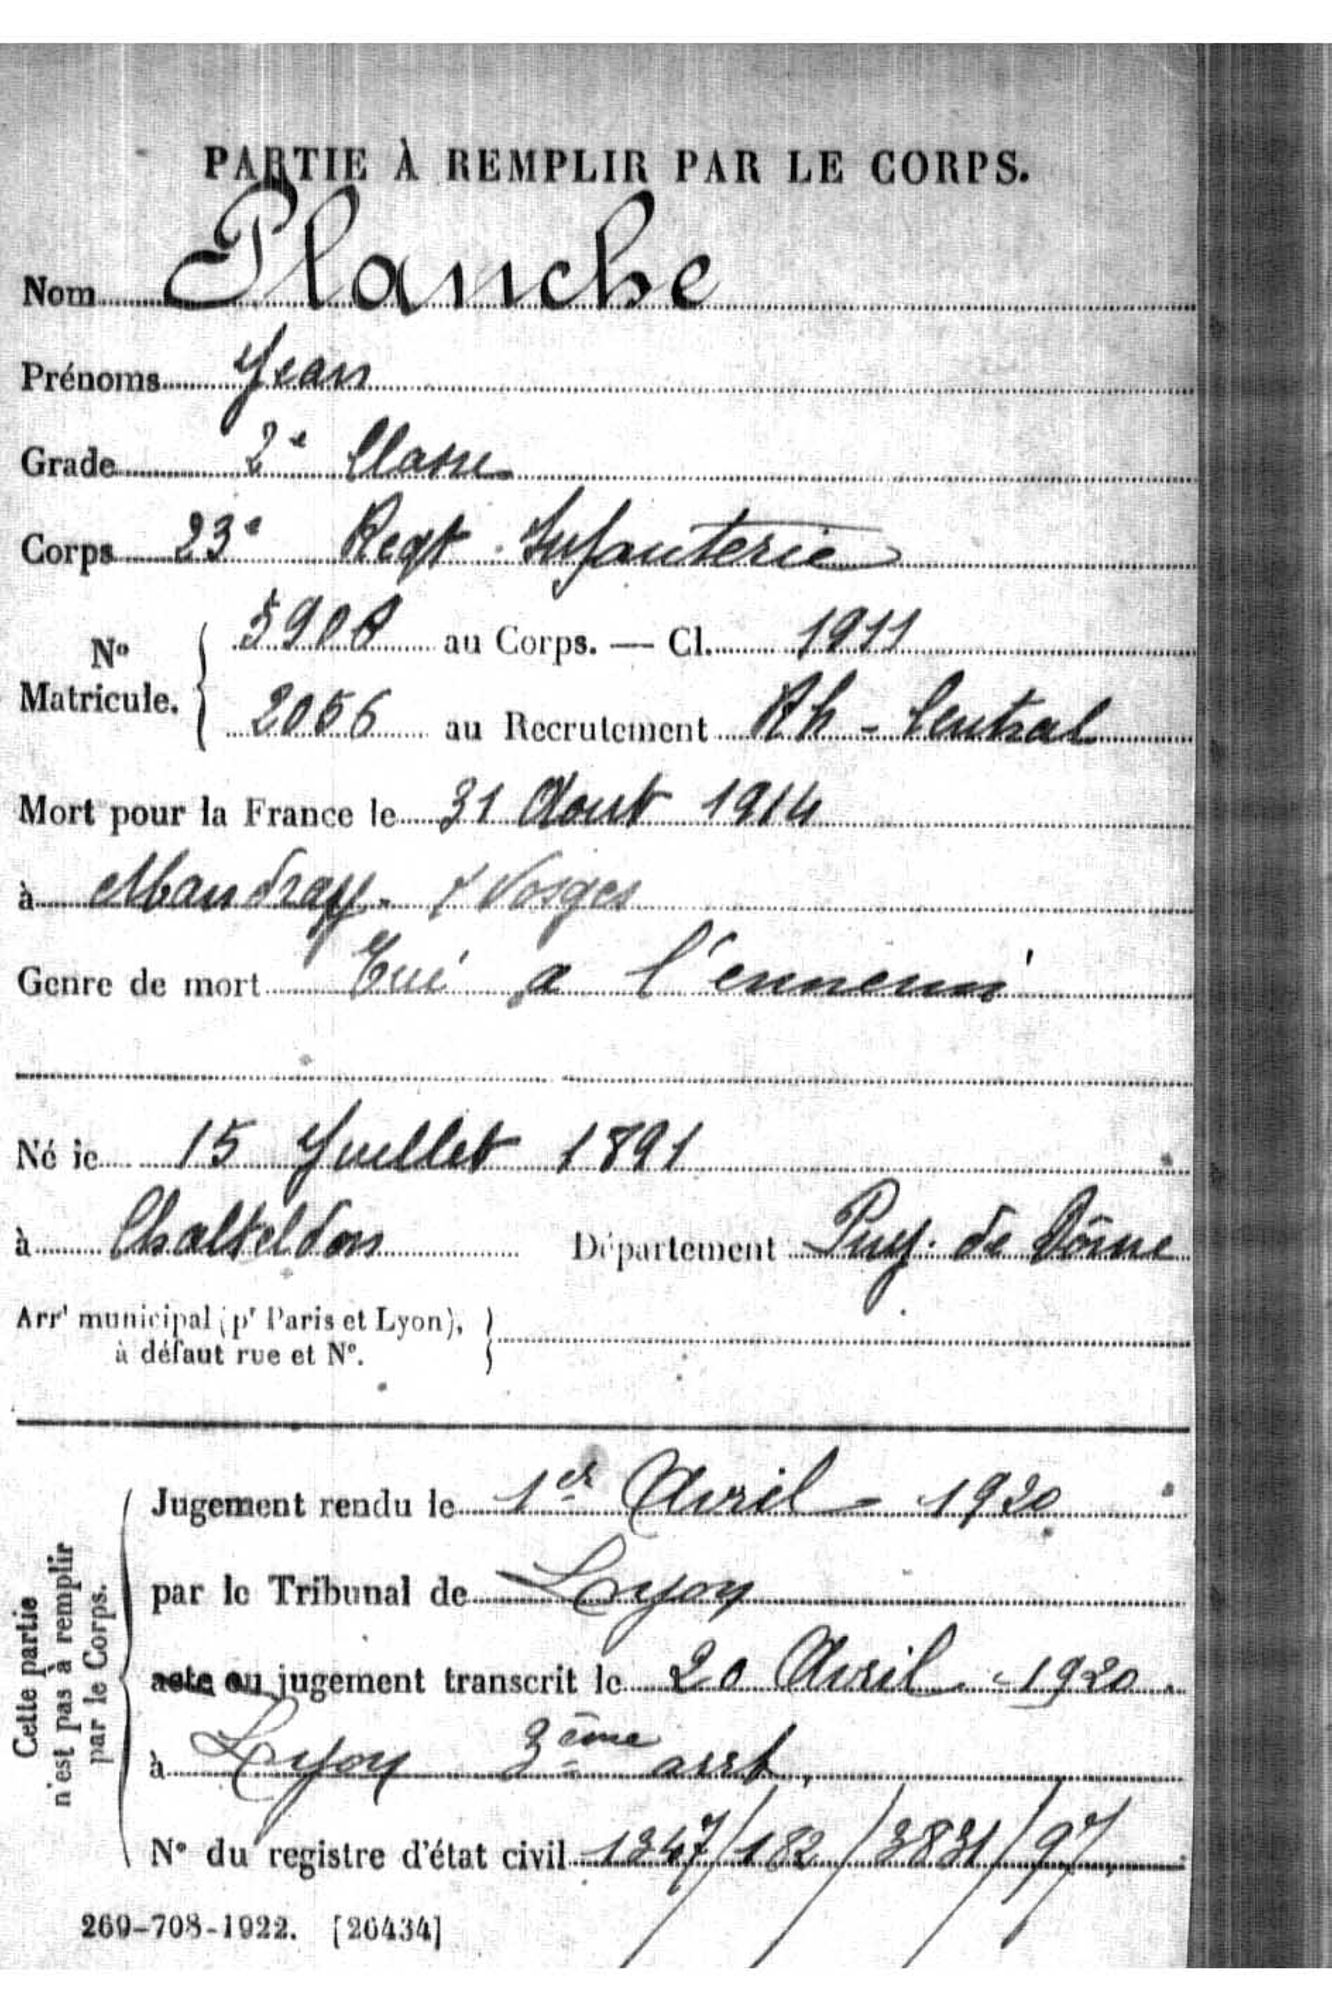 PARTIE À REMPLIR PAR LE CORPS.
Nom Planche
Prénoms Jean
Grade 2e Classe
Corps 23e Regt Infanterie
No Matricule. { 5908 au Corps. — Cl. 1911
2056 au Recrutement Rh - Central
Mort pour la France le 31 Aout 1914
à Mandray - Vosges
Genre de mort Tué a l'ennemi
Né le 15 Juillet 1891
à Chalteldon Département Puy. de Dôme
Arrt municipal (pr Paris et Lyon),
à défaut rue et No.
Cette partie
n'est pas à remplir
par le Corps.
Jugement rendu le 1er Avril - 1920
par le Tribunal de Lyon
acte ou jugement transcrit le 20 Avril - 1920.
à Lyon 3ème arrt.
No du registre d'état civil 1347/182/3831/97.
269-708-1922. [26434]